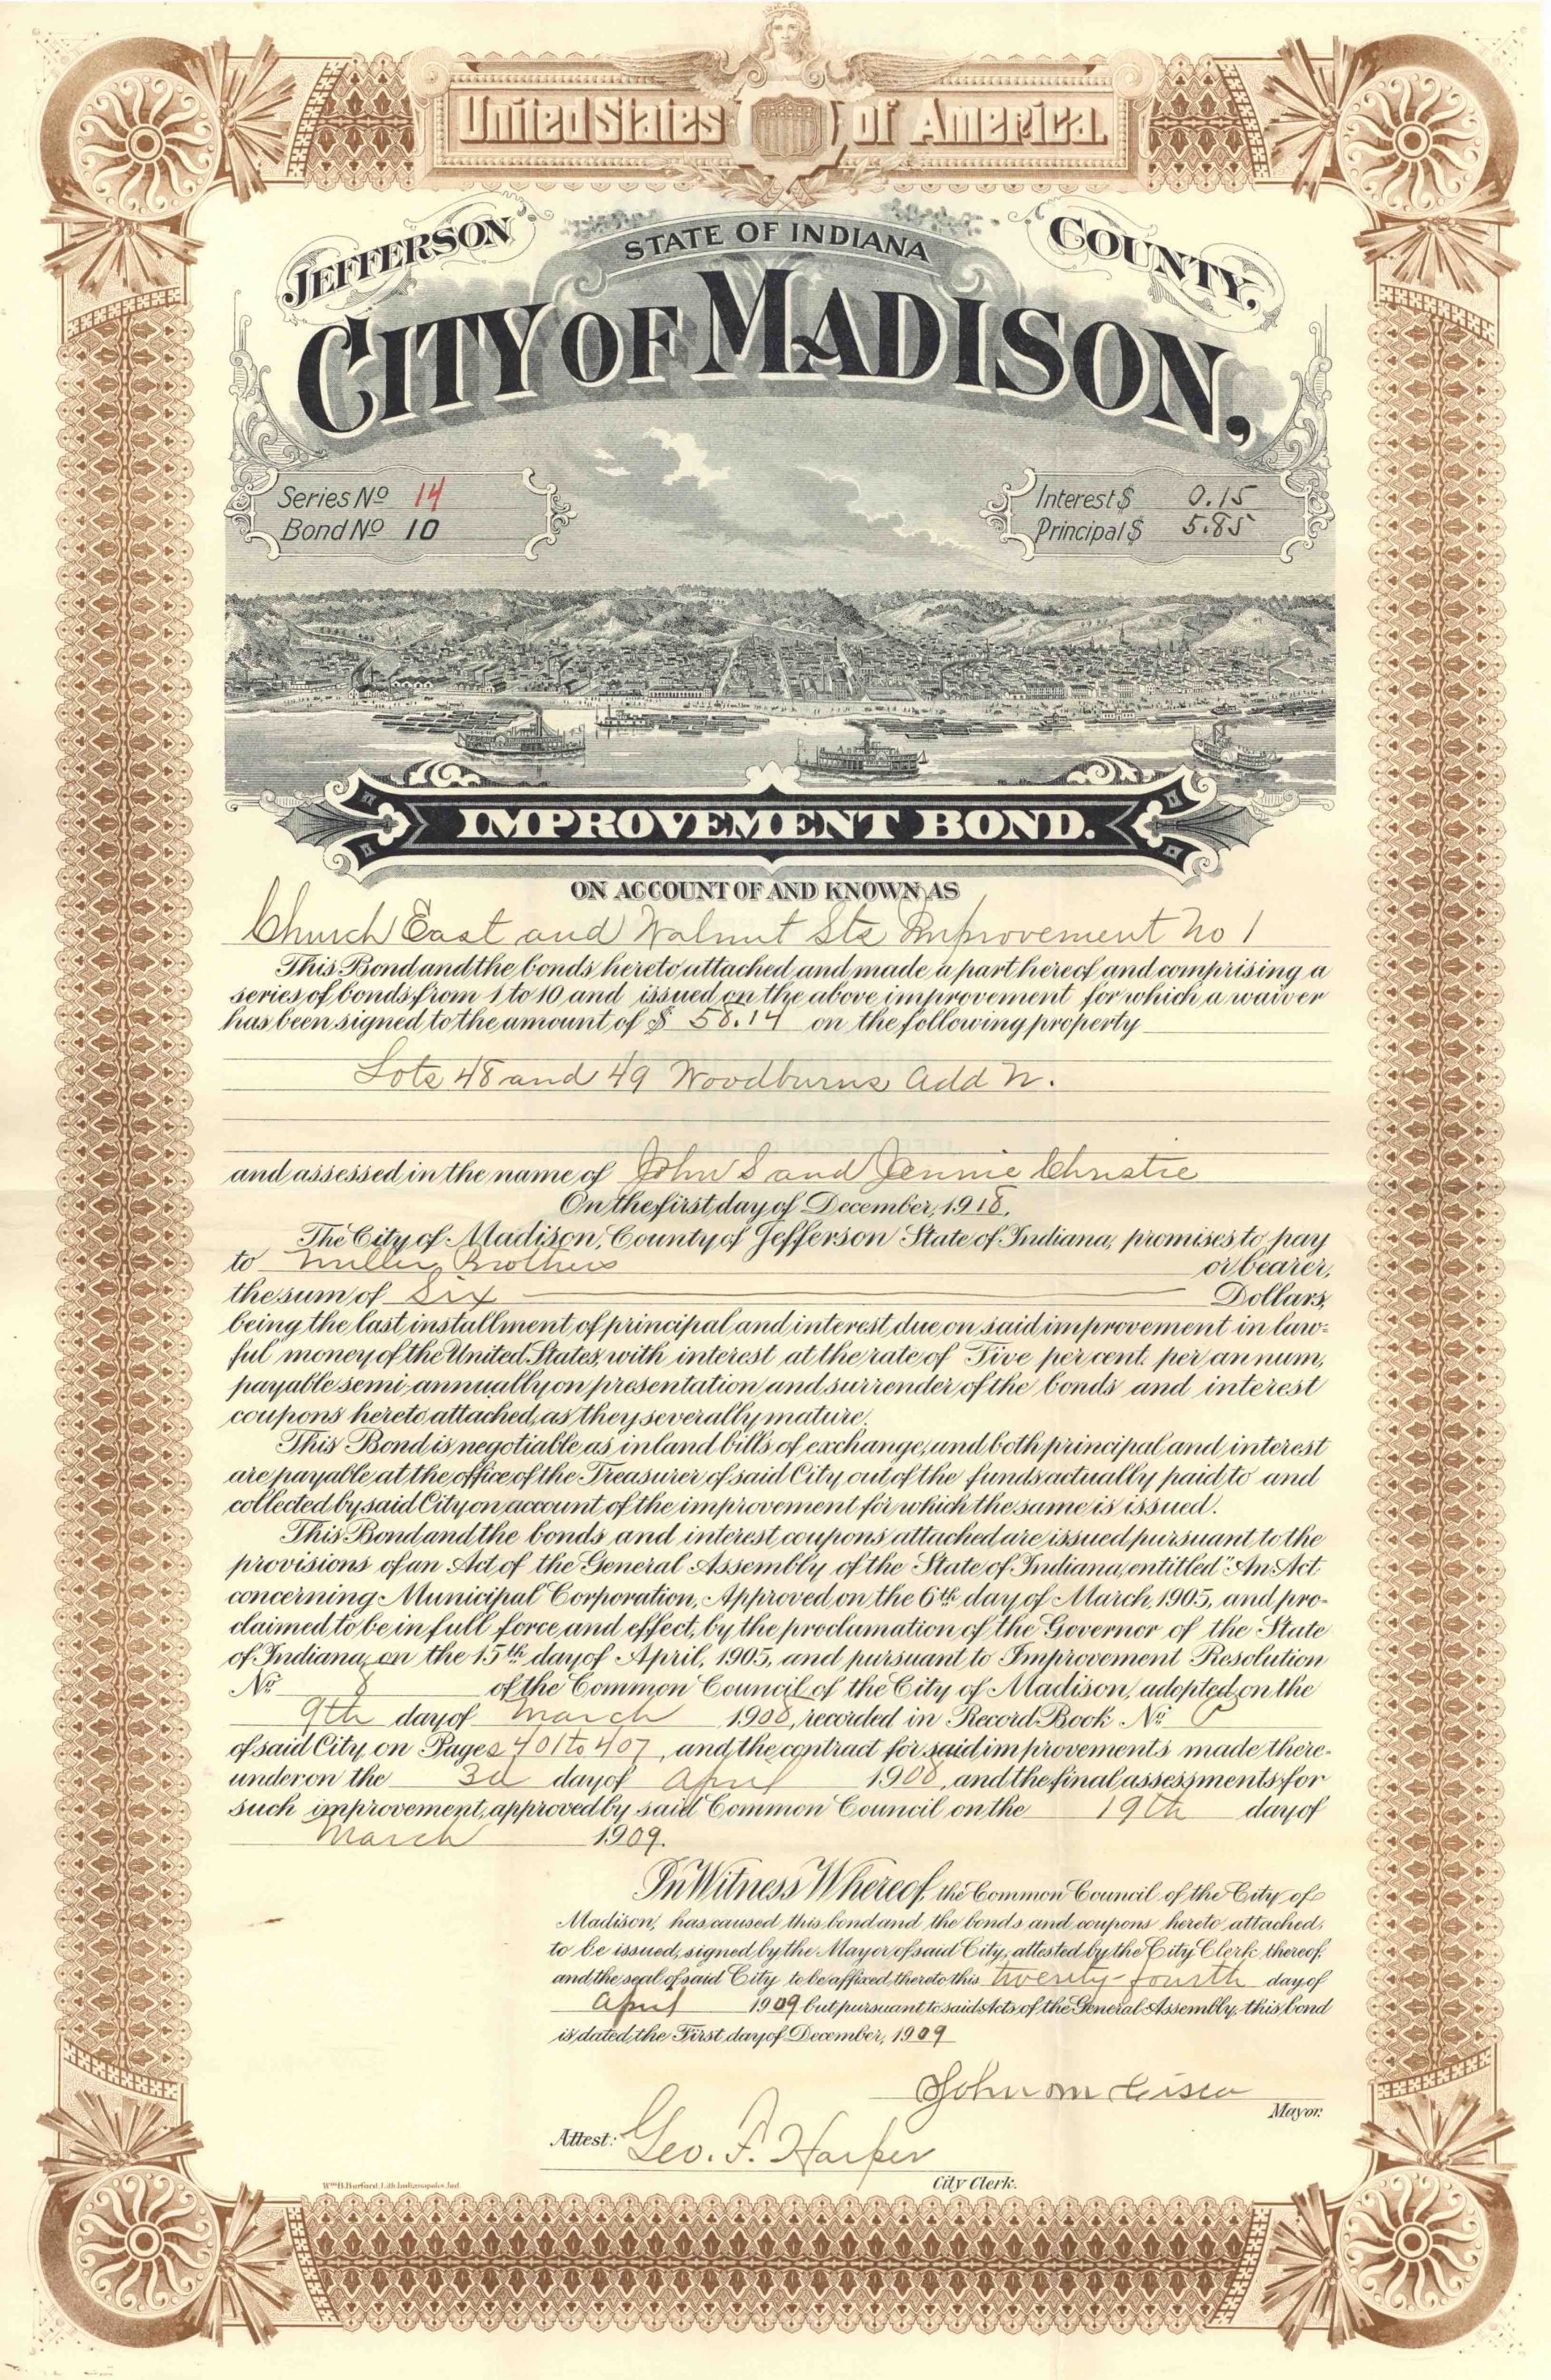 United States of America.
JEFFERSON COUNTY,
STATE OF INDIANA
CITY OF MADISON,
Series No 14
Bond No 10
Interest $ 0.15
Principal $ 5.85
IMPROVEMENT BOND.
ON ACCOUNT OF AND KNOWN AS
Church East and Walnut Sts Improvement No 1
This Bond and the bonds hereto attached and made a part hereof and comprising a
series of bonds from 1 to 10 and issued on the above improvement for which a waiver
has been signed to the amount of $ 58.14 on the following property
Lots 48 and 49 Woodburns Add n.
and assessed in the name of John S and Jennie Christie
On the first day of December, 1918,
The City of Madison, County of Jefferson State of Indiana, promises to pay
to Miller Brothers or bearer,
the sum of Six Dollars,
being the last installment of principal and interest due on said improvement in law=
ful money of the United States, with interest at the rate of Five per cent. per annum,
payable semi annually on presentation and surrender of the bonds and interest
coupons hereto attached, as they severally mature.
This Bond is negotiable as inland bills of exchange, and both principal and interest
are payable at the office of the Treasurer of said City out of the funds actually paid to and
collected by said City on account of the improvement for which the same is issued.
This Bond and the bonds and interest coupons attached are issued pursuant to the
provisions of an Act of the General Assembly of the State of Indiana, entitled "An Act
concerning Municipal Corporation, Approved on the 6th day of March, 1905, and pro-
claimed to be in full force and effect, by the proclamation of the Governor of the State
of Indiana, on the 15th day of April, 1905, and pursuant to Improvement Resolution
No 8 of the Common Council of the City of Madison, adopted on the
9th day of March 1908, recorded in Record Book No
of said City on Pages 401 to 407, and the contract for said improvements made there-
under on the 3d day of April 1908, and the final assessments for
such improvement, approved by said Common Council on the 19th day of
March 1909.
In Witness Whereof, the Common Council of the City of
Madison, has caused this bond and the bonds and coupons hereto attached,
to be issued, signed by the Mayor of said City, attested by the City Clerk thereof,
and the seal of said City to be affixed thereto this twenty-fourth day of
April 1909 but pursuant to said Acts of the General Assembly, this bond
is dated the First day of December, 1909
John M Cisco
Mayor.
Attest: Geo. F. Harper
City Clerk.
Wm B. Burford, Lith. Indianapolis, Ind.